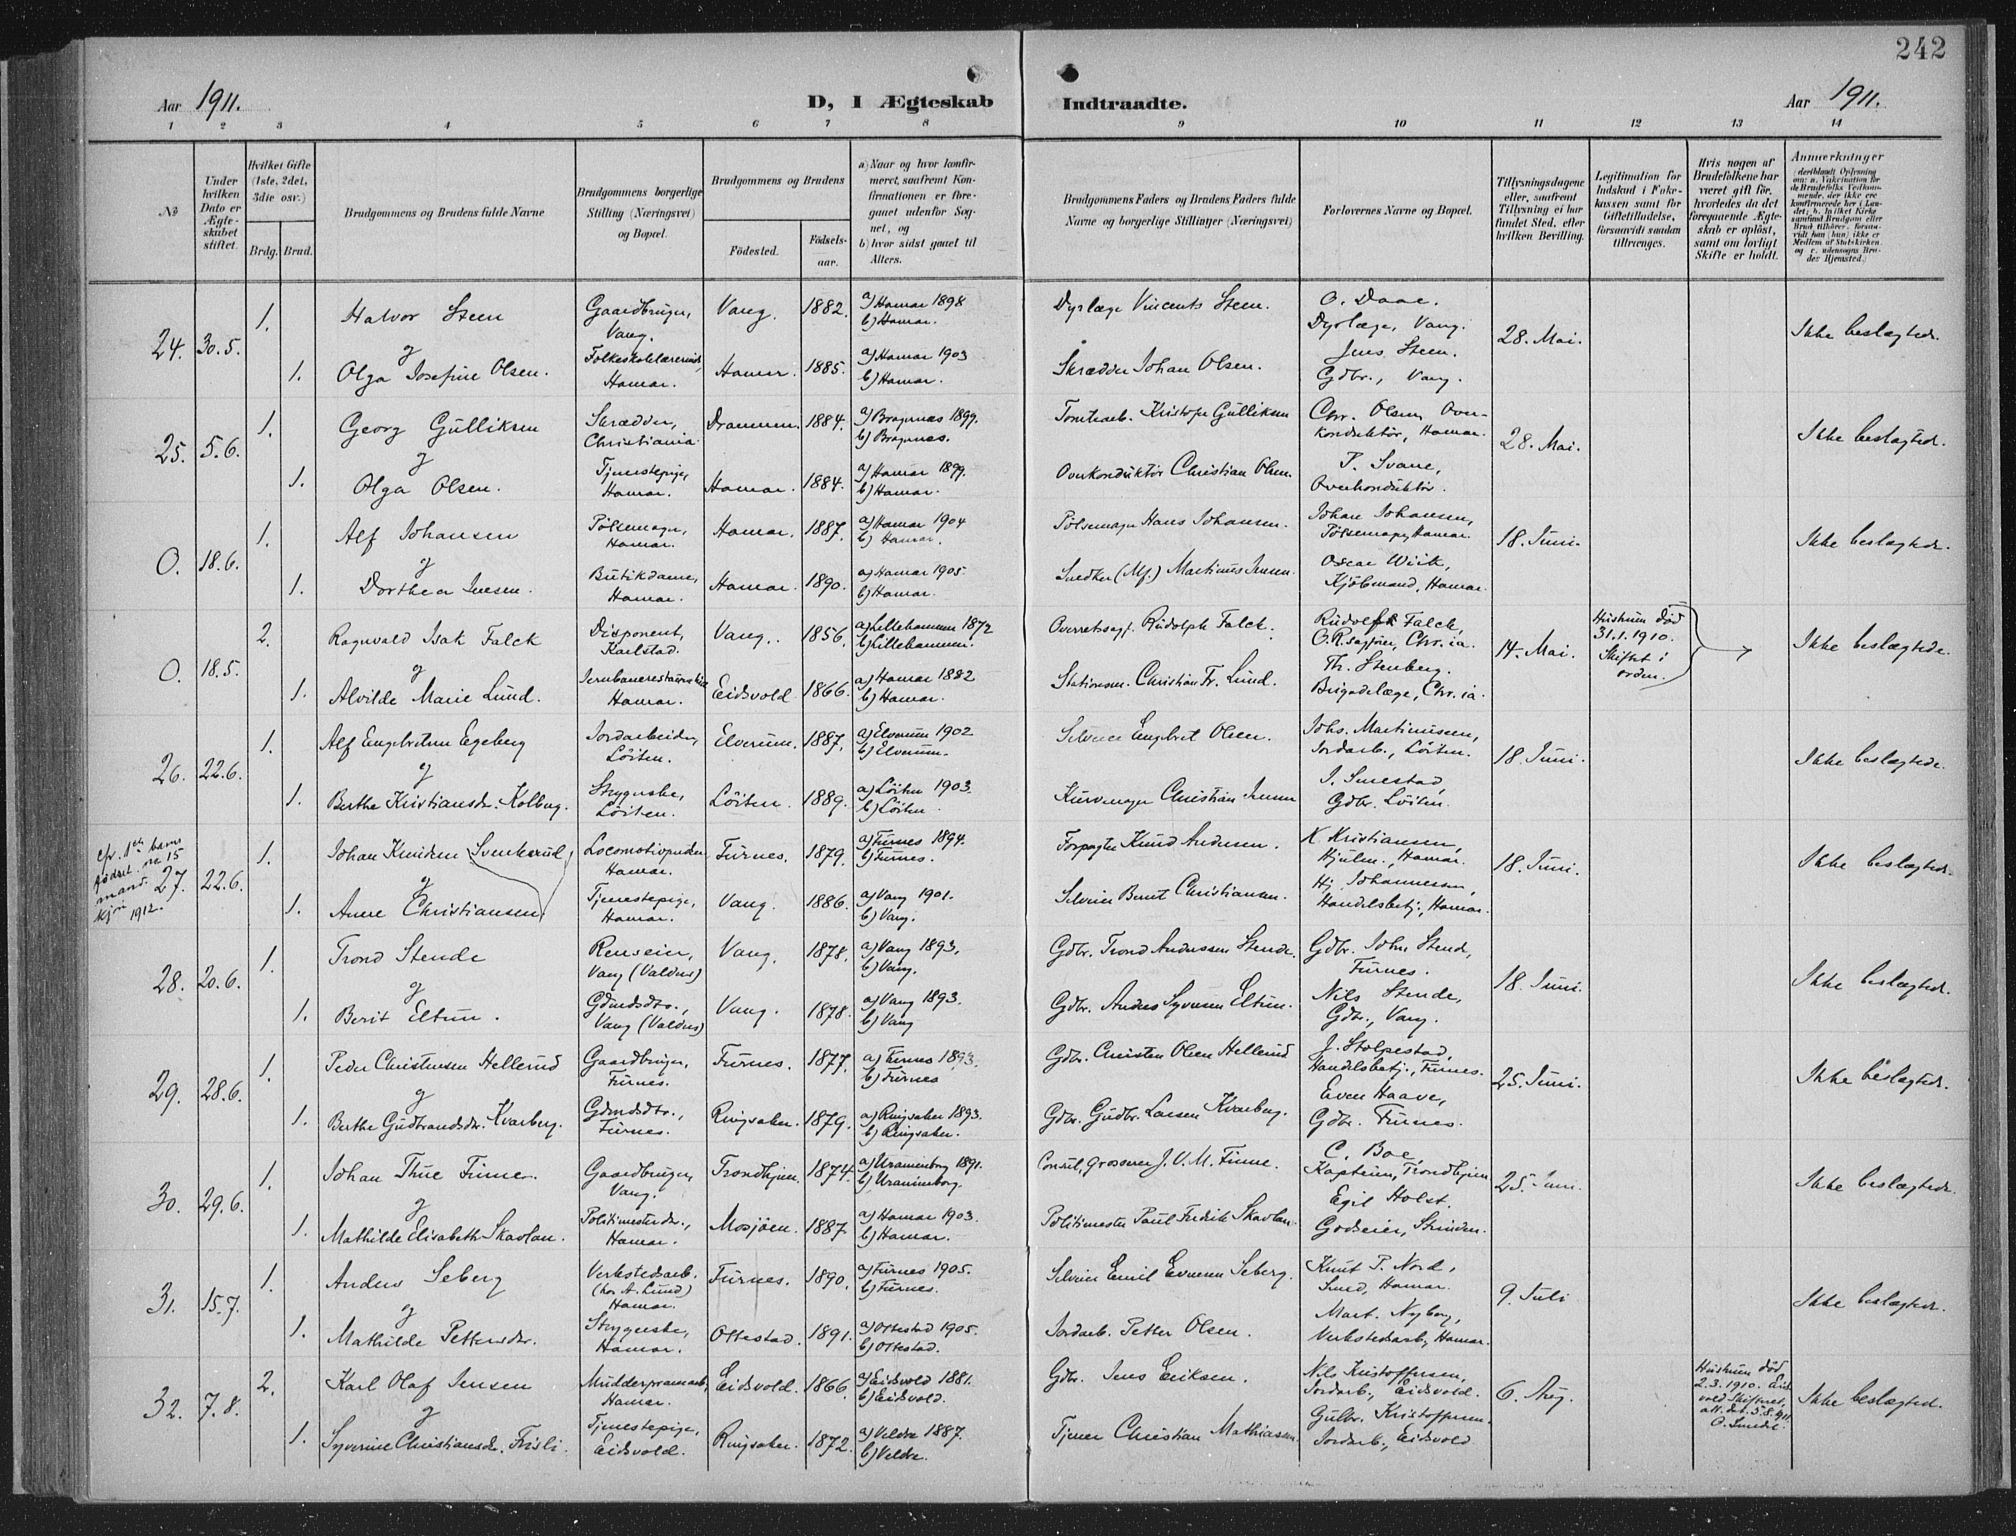 242
Aar 1911.
D, I Ægteskab Indtraadte.
Aar 1911.
1 2 3 4 5 6 7 8 9 10 11 12 13 14
No
Under hvilken Dato er Ægteskabet stiftet.
Hvilket Gifte (1ste, 2det, 3die osv.)
Brdg. Brud.
Brudgommens og Brudens fulde Navne
Brudgommens borgerlige Stilling (Næringsvei) og Bopæl.
Brudgommens og Brudens
Fødested.
Fødselsaar.
a) Naar og hvor konfirmeret, saafremt Konfirmationen er foregaaet udenfor Sognet, og
b) hvor sidst gaaet til Alters.
Brudgommens Faders og Brudens Faders fulde Navne og borgerlige Stillinger (Næringsvei)
Forlovernes Navne og Bopæl.
Tillysningsdagene eller, saafremt Tillysning ei har fundet Sted, efter hvilken Bevilling.
Legitimation for Indskud i Enkekassen samt for Giftetilladelse, forsaavidt saadan tiltrænges.
Hvis nogen af Brudefolkene har været gift før, hvorledes da det foregaaende Ægteskab er opløst, samt om lovligt Skifte er holdt.
Anmærkninger
(deriblandt Oplysning om: a. Vakcination for de Brudefolks Vedkommende, der ikke ere konfirmerede her i Landet; b. hvilken Kirke samtlig Brudgom eller Brud tilhører, forsaavidt han (hun) ikke er Medlem af Statskirken og c. udensogns Brudes Hjemsted.)
24. 30.5. 1. Halvor Steen Gaardbruger, Vang. Vang. 1882. a) Hamar 1898 b) Hamar. Dyrlæge Vincents Steen. O. Daae. Dyrlæge, Vang. 28. Mai. Ikke beslægtede.
og
1. Olga Josefine Olsen. Folkeskolelærerinde, Hamar. Hamar. 1885. a) Hamar 1903 b) Hamar. Skrædder Johan Olsen. Jens Steen. Gdbr., Vang.
25. 5.6. 1. Georg Gulliksen Skrædder, Christiania Drammen. 1884. a) Bragenæs 1899. b) Bragenæs. Tomtearb. Kristofer Gulliksen Chr. Olsen, Overkonduktør, Hamar. 28. Mai. Ikke beslægtede.
og
1. Olga Olsen. Tjenestepige, Hamar. Hamar. 1884. a) Hamar 1899. b) Hamar. Overkonduktør Christian Olsen. P. Svane, Overkonduktør.
0. 18.6. 1. Alf Johansen Pølsemager, Hamar. Hamar. 1887. a) Hamar 1904 b) Hamar. Pølsemager Hans Johansen. Johan Johansen, Pølsemager, Hamar. 18. Juni. Ikke beslægtede.
og
1. Dorthea Jensen. Butikdame, Hamar. Hamar. 1890. a) Hamar 1905. b) Hamar. Snedker (Mf.) Martinus Jensen. Oscar Wiik, Kjøbmand, Hamar.
0. 18.5. 2. Ragnvald Isak Falck Disponent, Karlstad. Vang. 1856. a) Lillehammer 1872 b) Lillehammer. Overretssagf. Rudolph Falck. Rudolf Falck, O.R.sagfører, Chr.ia. 14. Mai. Hustruen død 31.1.1910. Skiftet i orden. Ikke beslægtede.
og
1. Alvilde Marie Lund. Hamar. Eidsvold 1866. a) Hamar 1882 b) Hamar. Stationsm. Christian Fr. Lund. Th. Stenberg. Brigadelæge, Chr.ia.
26. 22.6. 1. Alf Engebretsen Egeberg Jordarbeider, Löiten. Elverum. 1887. a) Elverum 1902 b) Elverum. Selveier Engebret Olsen. Johs. Martinussen, Jordarb., Löiten. 18. Juni. Ikke beslægtede.
og
1. Berthe Kristiansdr. Kolberg. Strygerske, Löiten. Löiten. 1889. a) Löiten 1903. b) Löiten. Kurvmager Christian Jensen J. Smestad, Gdbr. Löiten.
cfr. 1ste barns fødsel. no 15 mand. kjøn 1912.
27. 22.6. 1. Johan Knudsen Svenkerud Locomotivpudser, Hamar. Furnes. 1879. a) Furnes 1894. b) Furnes. Forpagter Knud Andersen. K. Kristiansen, Hjulm., Hamar. 18. Juni. Ikke beslægtede.
og
1. Anne Christiansen. Tjenestepige, Hamar. Vang. 1886. a) Vang 1901. b) Vang. Selveier Bernt Christiansen. Hj. Johannessen, Handelsbetj., Hamar.
28. 20.6. 1. Trond Stende Renseier, Vang (Valdres) Vang. 1878. a) Vang 1893. b) Vang. Gdbr. Trond Anderssen Stende. Gdbr. John Stende, Furnes. 18. Juni. Ikke beslægtede.
og
1. Berit Eltun. Gdmdsdtr., Vang (Valdres) Vang. 1878. a) Vang 1893. b) Vang Gdbr. Anders Syversen Eltun. Nils Stende, Gdbr., Vang.
29. 28.6. 1. Peder Christensen Hellerud Gaardbruger, Furnes. Furnes. 1877. a) Furnes 1893. b) Furnes Gdbr. Christen Olsen Hellerud J. Stolpestad, Handelsbetj., Furnes. 25. Juni. Ikke beslægtede.
og
1. Berthe Gudbrandsdr. Kvarberg. Gdmdsdtr., Furnes. Ringsaker. 1879. a) Ringsaker 1893. b) Ringsaker. Gdbr. Gudbr. Larsen Kvarberg. Even Haave, Gdbr. Furnes.
30. 29.6. 1. Johan Thue Finne. Gaardbruger, Vang. Trondhjem. 1874. a) Uranienborg 1891. b) Uranienborg. Consul, Grosserer J. V. M. Finne. C. Boe, Kaptein, Trondhjem 25. Juni. Ikke beslægtede.
og
1. Mathilde Elisabeth Skavlan. Politimesterdr., Hamar. Mosjøen. 1887. a) Hamar 1903. b) Hamar. Politimester Paul Fredrik Skavlan. Egil Holst. Godseier, Strinden.
31. 15.7. 1. Anders Seberg Verkstedsarb. (hos A. Lund) Hamar. Furnes. 1890. a) Furnes 1905. b) Furnes. Selveier Emil Evensen Seberg. Knut P. Nord, Smed, Hamar. 9. Juli Ikke beslægtede.
og
1. Mathilde Pettersdr. Strygerske, Hamar. Ottestad. 1891. a) Ottestad 1905. b) Ottestad. Jordarb. Petter Olsen. Mart. Nyborg, Verkstedsarb, Hamar.
32. 7.8. 2. Karl Olaf Jensen Mudderpramarb., Hamar. Eidsvold. 1866. a) Eidsvold 1881. b) Eidsvold. Gdbr. Jens Eriksen. Nils Kristoffersen, Jordarb., Eidsvold. 6. Aug. Hustruen død 2.3.1910. Eidsvold Skifteret, att. dat. 5.8.1911. O. Smedal Ikke beslægtede.
og
1. Syverine Christiansdr. Frisli. Tjenestepige, Eidsvold. Ringsaker. 1872. a) Veldre 1887. b) Veldre. Tjener Christian Mathiassen. Gulbr. Kristoffersen. Jordarb., Eidsvold